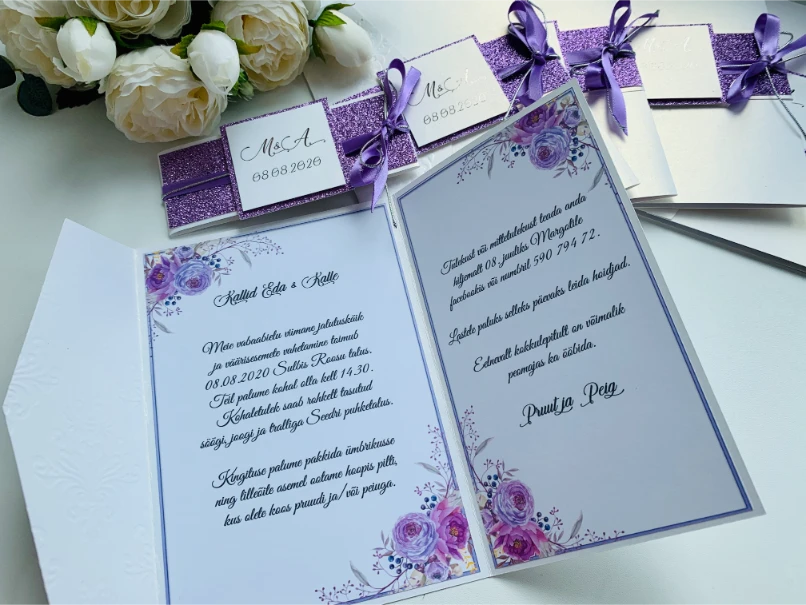 M&A
08.08.2020
M&A
08.08.2020
Kallid Eda & Kalle
Meie vabaabielu viimane jalutuskäik
ja väärisesemete vahetamine toimub
08.08.2020 Sulbis Roosu talus.
Teil palume kohal olla kell 14.30.
Kohaletulek saab rohkelt tasutud
söögi, joogi ja tralliga Seedri puhketalus.
Kingituse palume pakkida ümbrikusse
ning lilleõite asemel ootame hoopis pilti,
kus olete koos pruudi ja/või peiuga.
Tulekust või mittetulekust teada anda
hiljemalt 08. juuliks Margotile
facebookis või numbril 590 794 72.
Lastele paluks selleks päevaks leida hoidjad.
Eelnevalt kokkulepitult on võimalik
peomajas ka ööbida.
Pruut ja Peig